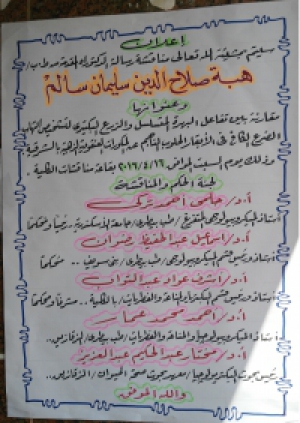 إعلان
سيتم بمشيئة الله تعالى مناقشة رسالة الدكتوراه المقدمة من ط.ب/
هبة صلاح الدين سليمان سالم
وعنوانها
مقارنة بين تفاعل البلمرة المتسلسل والزرع البكتيرى لتشخيص التهاب
الضرع فى الأبقار الحلوب الناجم عن المكورات العنقودية الذهبية
وذلك يوم السبت الموافق ٢٠١٦/٤/١٦ بقاعة مناقشات الكلية
لجنة الحكم والمناقشة
أ.د/ حلمى أحمد تركى
أستاذ البكتريولوجيا المتفرغ / طب بيطرى / جامعة الأسكندرية رئيسا ومحكما
أ.د/ اسماعيل عبد الحفيظ رضوان
أستاذ ورئيس قسم الميكروبيولوجيا / طب بيطرى / بنى سويف .. محكما
أ.د/ أشرف عواد عبد التواب
أستاذ ورئيس قسم البكتريولوجيا والمناعة والفطريات / بالكلية .. مشرفا ومحكما
أ.د/ أحمد محمد عمار
أستاذ البكتريولوجيا والمناعة والفطريات / طب بيطرى / الزقازيق..
أ.د/ مختار عبد الحليم عبد العزيز
رئيس بحوث البكتريولوجيا / معهد بحوث صحة الحيوان / الزقازيق..
والله الموفق